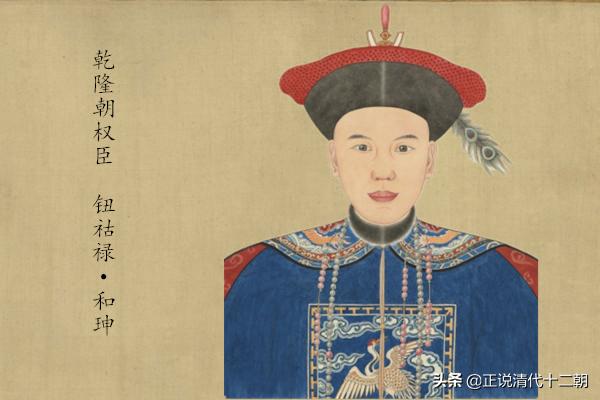 乾隆朝权臣 钮祜禄·和珅
头条 @正说清代十二朝